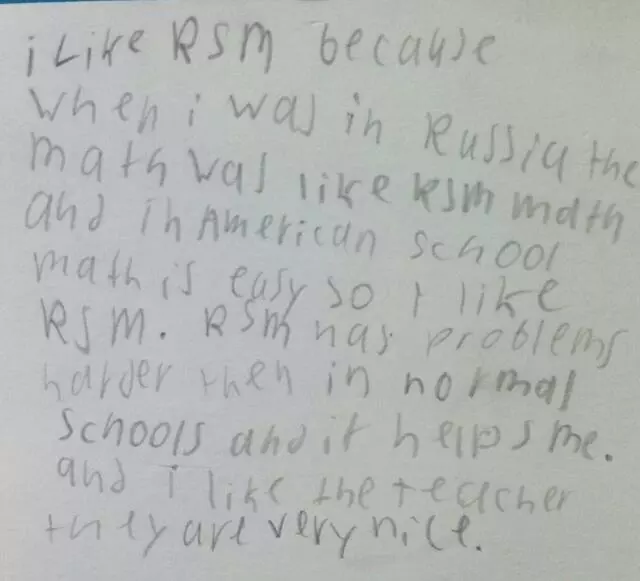 i Like RSM because
when i was in Russia the
math was like RSM math
and in American school
math is easy so I like
RSM. RSM has problems
harder then in normal
schools and it helps me.
and i like the teacher
they are very nice.